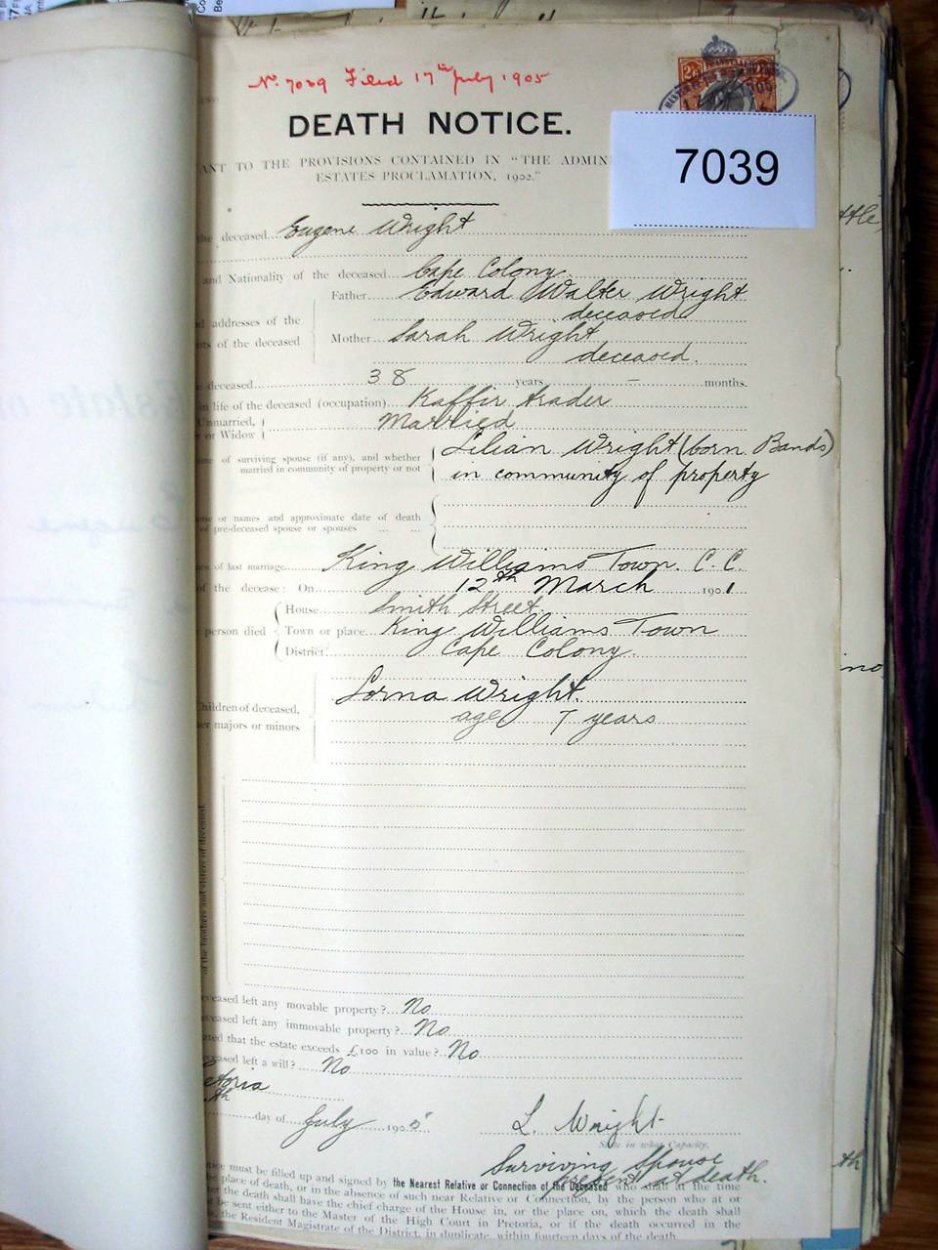 No. 7039 Filed 17th July 1905
DEATH NOTICE.
7039
ANT TO THE PROVISIONS CONTAINED IN "THE ADMIN
ESTATES PROCLAMATION, 1902."
the deceased Eugene Wright
and Nationality of the deceased Cape Colony
Father Edward Walter Wright
deceased
d addresses of the
ts of the deceased
Mother Sarah Wright
deceased.
e deceased 38 years – months.
in life of the deceased (occupation) Kaffir trader
Unmarried,
or Widow
Married
me of surviving spouse (if any), and whether
married in community of property or not
Lilian Wright (born Bands)
in community of property
me or names and approximate date of death
of pre-deceased spouse or spouses
ce of last marriage King Williams Town. C. C.
of the decease: On 12th March 1901
House Smith Street
person died Town or place King Williams Town
District Cape Colony.
Children of deceased,
er majors or minors
Lorna Wright.
age 7 years
of the brothers and sisters of deceased.
ceased left any movable property? No
ceased left any immovable property? No
ated that the estate exceeds £100 in value? No
ceased left a will? No
etoria
th
day of July 1905
L. Wright
State in what Capacity.
Surviving Spouse
present at death.
ice must be filled up and signed by the Nearest Relative or Connection of the Deceased who shall at the time
place of death, or in the absence of such near Relative or Connection, by the person who at or
r the death shall have the chief charge of the House in, or the place on, which the death shall
be sent either to the Master of the High Court in Pretoria, or if the death occurred in the
, the Resident Magistrate of the District, in duplicate, within fourteen days of the death.